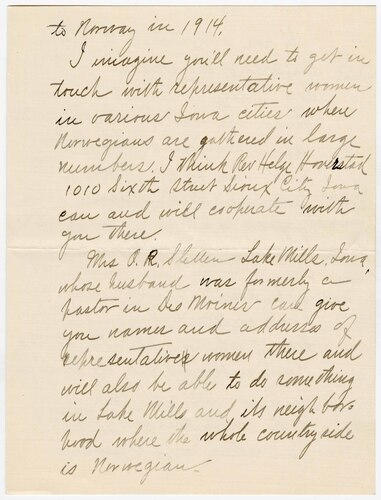 to Norway in 1914.
I imagine you'll need to get in
touch with representative women
in various Iowa cities where
Norwegians are gathered in large
numbers. I think Rev Helge
1010 Sixth street Sioux City Iowa
can and will cooperate with
you there.
Mrs O.R. Lake Mills, Iowa,
whose husband was formerly a
pastor in Des Moines can give
you names and address of
representative women there and
will also be able to do something
in Lake Mills and its neighbor
hood where the whole countryside
is Norwegian.